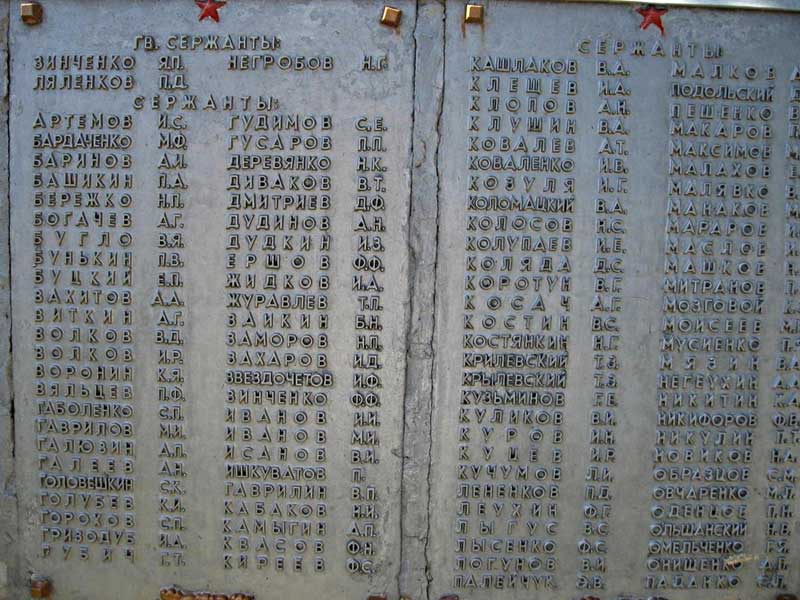 ГВ. СЕРЖАНТЫ:
ЗИНЧЕНКО Я.П. НЕГРОБОВ Н.Г.
ЛЯЛЕНКОВ П.Д.
СЕРЖАНТЫ:
АРТЕМОВ И.С. ГУДИМОВ С.Е.
БАРДАЧЕНКО М.Ф. ГУСАРОВ П.П.
БАРИНОВ А.И. ДЕРЕВЯНКО Н.К.
БАШИКИН П.А. ДИВАКОВ В.Т.
БЕРЕЖКО Н.П. ДМИТРИЕВ Д.Ф.
БОГАЧЕВ А.Г. ДУДИНОВ А.Н.
БУГЛО В.Я. ДУДКИН И.З.
БУНЬКИН П.В. ЕРШОВ Ф.Ф.
БУЦКИЙ Е.П. ЖИДКОВ И.А.
ЗАХИТОВ А.А. ЖУРАВЛЕВ Т.П.
ВИТКИН А.Г. ЗАИКИН Б.Н.
ВОЛКОВ В.Д. ЗАМОРОВ Н.П.
ВОЛКОВ И.Р. ЗАХАРОВ И.Д.
ВОРОНИН К.Я. ЗВЕЗДОЧЕТОВ И.Ф.
ВЯЛЬЦЕВ П.Ф. ЗИНЧЕНКО Ф.Ф.
ГАБОЛЕНКО С.П. ИВАНОВ И.И.
ГАВРИЛОВ М.И. ИВАНОВ М.И.
ГАЛЮЗИН А.П. ИСАНОВ В.И.
ГАЛЕЕВ А.Н. ИШКУВАТОВ Г.
ГОЛОВЕШКИН С.К. ГАВРИЛИН В.П.
ГОЛУБЕВ К.И. КАБАКОВ Н.И.
ГОРОХОВ С.П. КАМЫГИН А.П.
ГРИЗОДУБ И.А. КВАСОВ Ф.Н.
ГУБИЧ Г.Т. КИРЕЕВ Ф.С.
СЕРЖАНТЫ
КАШЛАКОВ В.А. МАЛКОВ
КЛЕЩЕВ И.А. ПОДОЛЬСКИЙ
КЛОПОВ А.Н. ПЕШЕНКО
КЛУШИН В.А. МАКАРОВ
КОВАЛЕВ А.Т. МАКСИМОВ
КОВАЛЕНКО И.В. МАЛАХОВ
КОЗУЛЯ И.Г. МАЛЯВКО
КОЛОМАЦКИЙ В.А. МАНАКОВ
КОЛОСОВ Н.С. МАРАРОВ
КОЛУПАЕВ И.Е. МАСЛОВ
КОЛЯДА Д.С. МАШКОВ
КОРОТУН В.Г. МИТРАНОВ
КОСАЧ А.Г. МОЗГОВОЙ
КОСТИН В.С. МОИСЕЕВ
КОСТЯНКИН Н.Г. МУСИЕНКО
КРИЛЕВСКИЙ Т.З. МЯЗИН
КРЫЛЕВСКИЙ Т.З. НЕГЕУХИН
КУЗЬМИНОВ Г.Е. НИКИТИН
КУЛИКОВ В.И. НИКИФОРОВ
КУРОВ И.Н. НИКУЛИН
КУЦЕВ И.Р. НОВИКОВ
КУЧУМОВ Л.И. ОБРАЗЦОВ С.М.
ЛЕНЕНКОВ П.Д. ОВЧАРЕНКО
ЛЕУХИН Ф.Г. ОДЕНЦОВ
ЛЫГУС В.С. ОЛЬШАНСКИЙ
ЛЫСЕНКО Ф.С. ОМЕЛЬЧЕНКО
ЛОГУНОВ В.И. ОНИЩЕНКО
ПАЛЕЙЧУК Э.В. ПАДАНКО